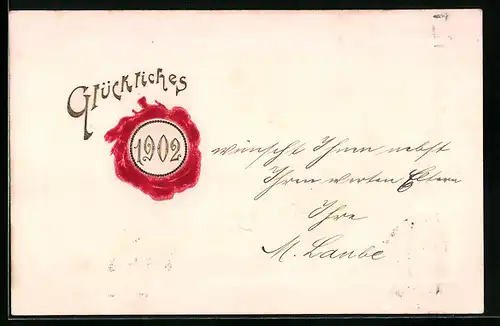 Glückliches
1902
wünscht Ihnen nebst
Ihren werten Eltern
Ihre
M. Laube